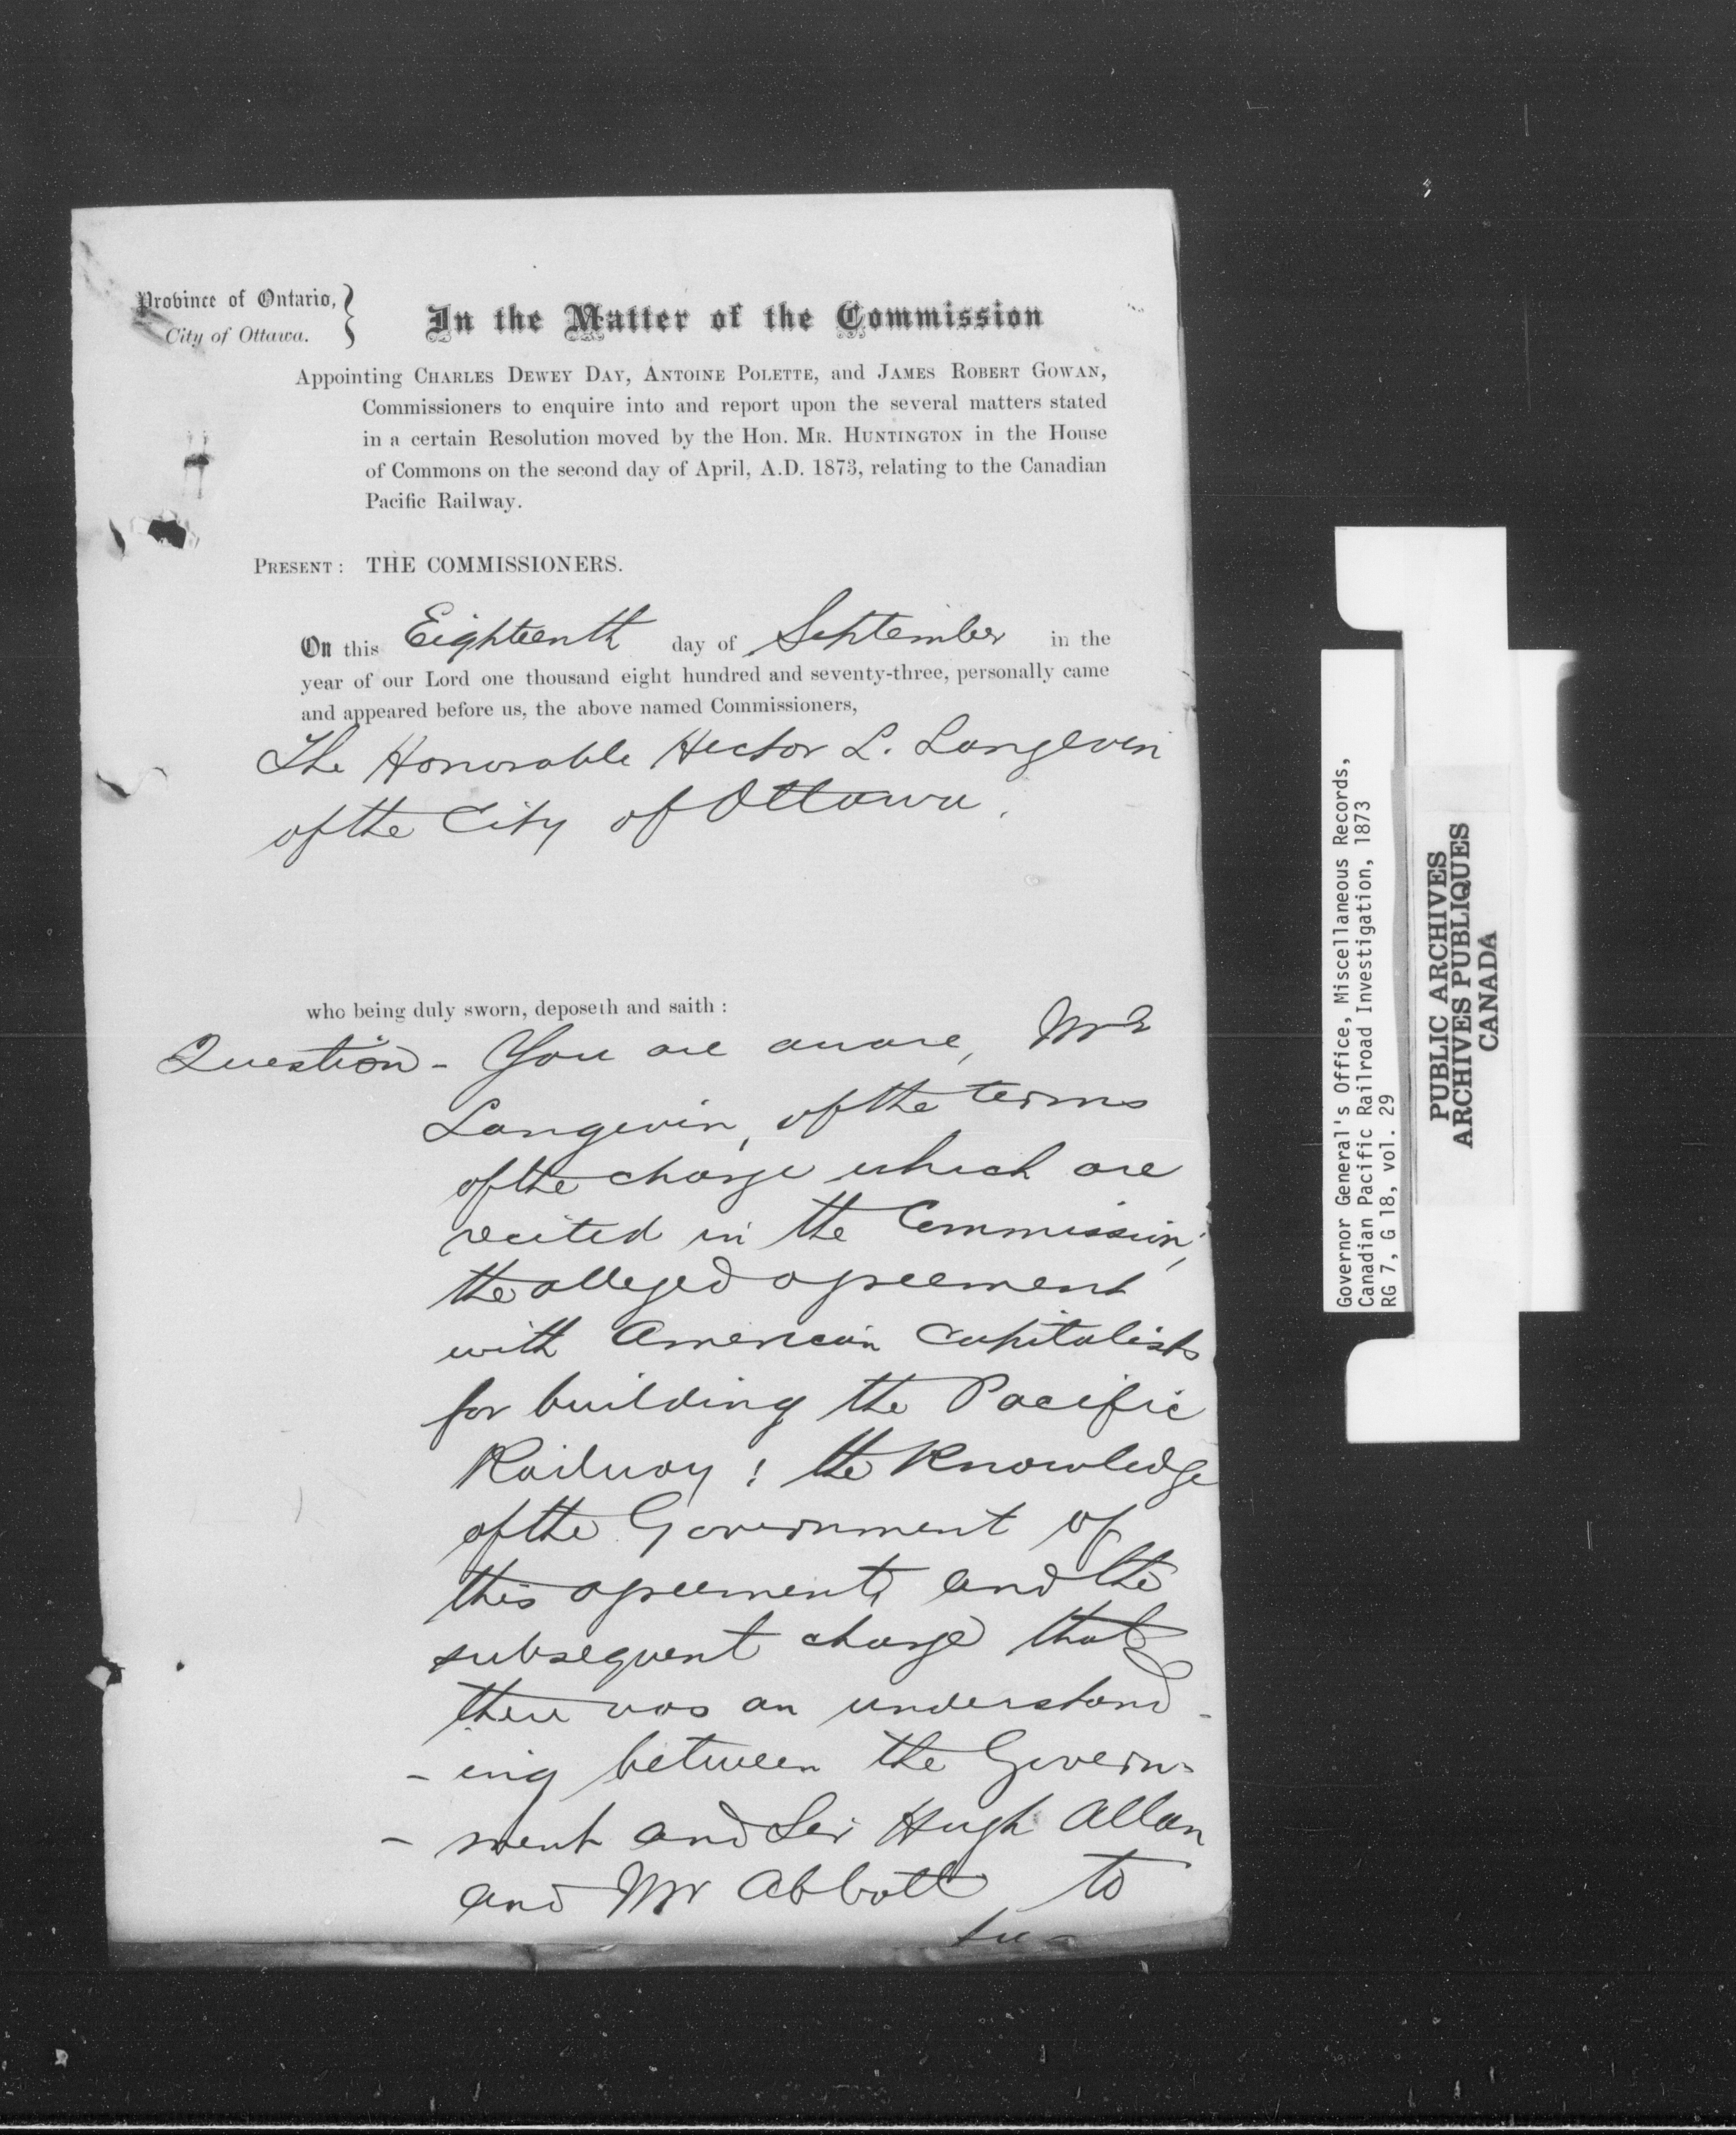 Province of Ontario,
City of Ottawa.
In the Matter of the Commission
Appointing CHARLES DEWEY DAY, ANTOINE POLETTE, and JAMES ROBERT GOWAN,
Commissioners to enquire into and report upon the several matters stated
in a certain Resolution moved by the Hon. MR. HUNTINGTON in the House
of Commons on the second day of April, A.D. 1873, relating to the Canadian
Pacific Railway.
PRESENT: THE COMMISSIONERS.
On this Eighteenth day of September in the
year of our Lord one thousand eight hundred and seventy-three, personally came
and appeared before us, the above named Commissioners,
The Honorable Hector L. Langevin
of the City of Ottawa.
who being duly sworn, deposeth and saith:
Question - You are aware, Mr
Langevin, of the terms
of the charge which are
recited in the Commission;
the alleged agreement
with American capitalists
for building the Pacific
Railway; the knowledge
of the Government of
this agreement, and the
subsequent charge that
there was an understand-
-ing between the Govern-
-ment and Sir Hugh Allan
and Mr Abbott to
Governor General's Office, Miscellaneous Records,
Canadian Pacific Railroad Investigation, 1873
RG 7, G 18, vol. 29
PUBLIC ARCHIVES
ARCHIVES PUBLIQUES
CANADA